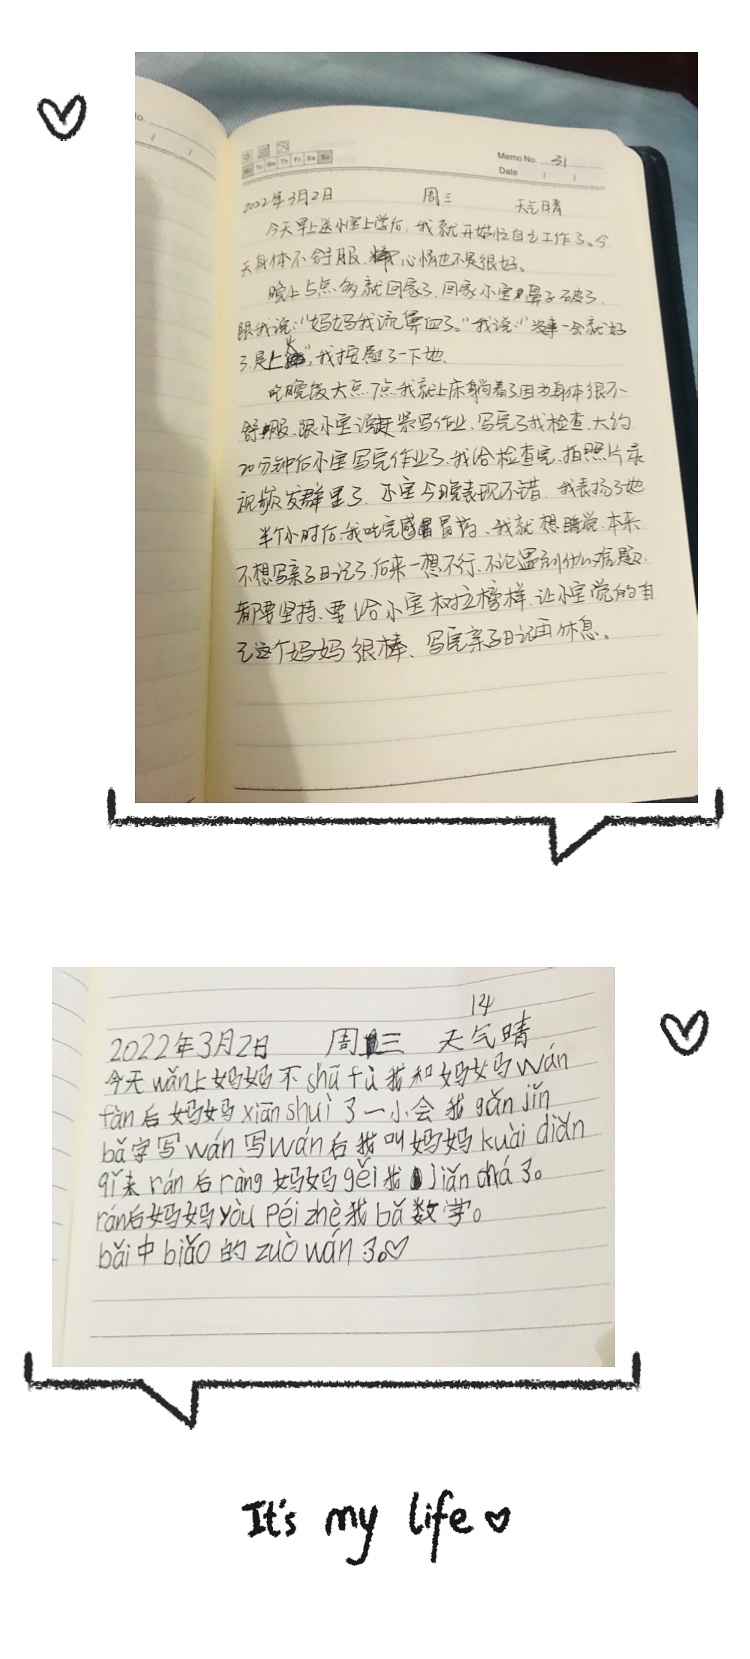 Memo No. 31
Mo Tu We Th Fr Sa Su
Date / /
2022年3月2日 周三 天气晴
今天早上送小宝上学后,我就开始忙自己工作了。今
天身体不舒服,心情也不是很好。
晚上5点多就回家了,回家小宝鼻子破了,
跟我说:“妈妈我流鼻血了。”我说:“没事一会就好
了,我按慰了一下她。
吃晚饭大点,7点我就上床躺着了因为身体很不
舒服,跟小宝说赶紧写作业,写完了我检查,大约
20分钟后小宝写完作业了,我给检查完,拍照片录
视频发群里了,小宝今晚表现不错,我表扬了她
半个小时后,我吃完感冒药,我就想睡觉,本来
不想写亲子日记了,后来一想不行,不论遇到什么难题,
都要坚持,要给小宝树立榜样,让小宝觉的自
己这个妈妈很棒、写完亲子日记再休息。
14
2022年3月2日 周三 天气晴
今天wǎn上妈妈不shū fú我和妈妈wán
fàn后妈妈xiān shuì了一小会我gǎn jǐn
bǎ字写wán写wán后我叫妈妈kuài diǎn
qǐ来rán后ràng妈妈gěi我jiǎn chá了。
rán后妈妈yòu péi zhè我bǎ数学。
bǎi中biǎo的zuò wán了。♡
It's my life